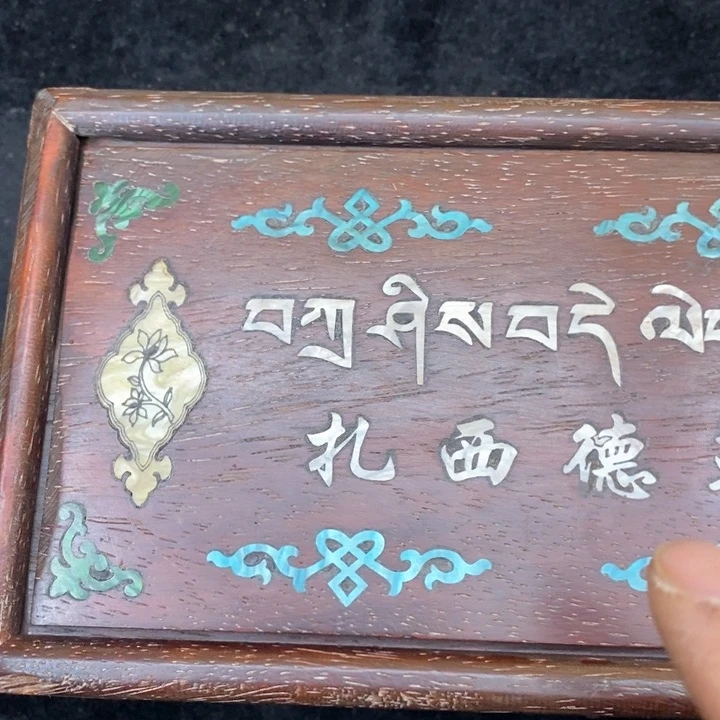 བཀྲཤིསབདེལེ
扎西德